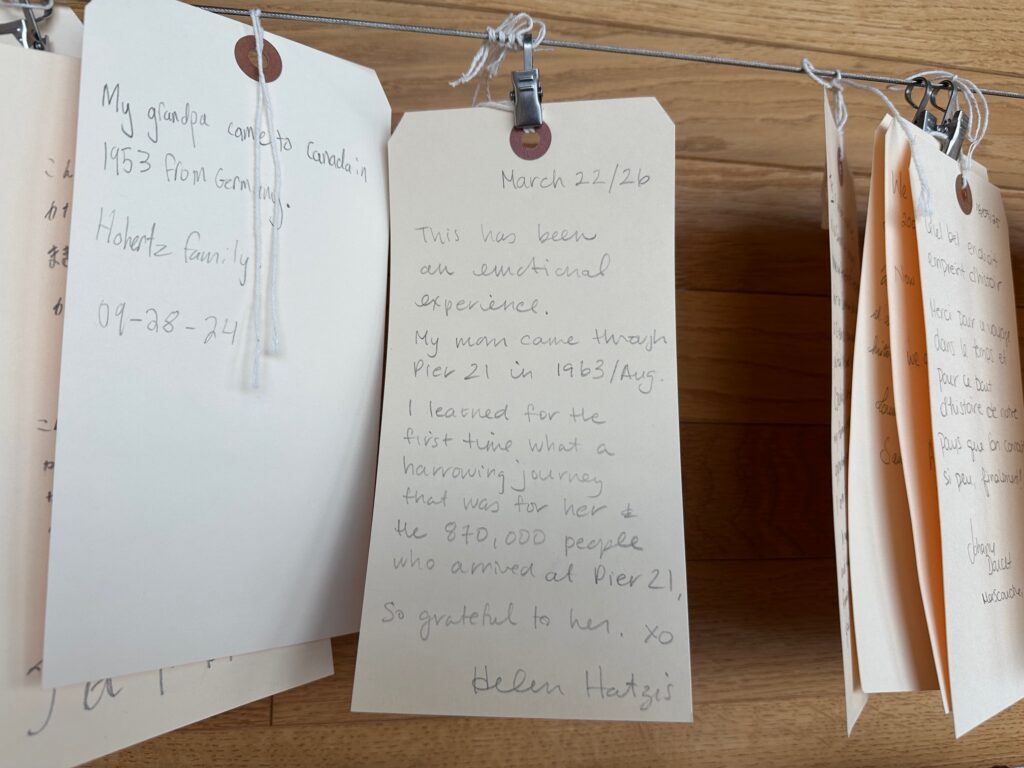 My grandpa came to Canada in
1953 from Germany.
Hohertz family
09-28-24
March 22/26
This has been
an emotional
experience.
My mom came through
Pier 21 in 1963/Aug.
I learned for the
first time what a
harrowing journey
that was for her &
the 870,000 people
who arrived at Pier 21.
So grateful to her. xo
Helen Hatzis
こん
か
ま
か
こ
We
Now
we
Quel bel endroit
empreint d'histoire
Merci pour ce voyage
dans le temps et
pour ce bout
d'histoire de notre
pays que l'on connait
si peu, finalement!
Mascouche